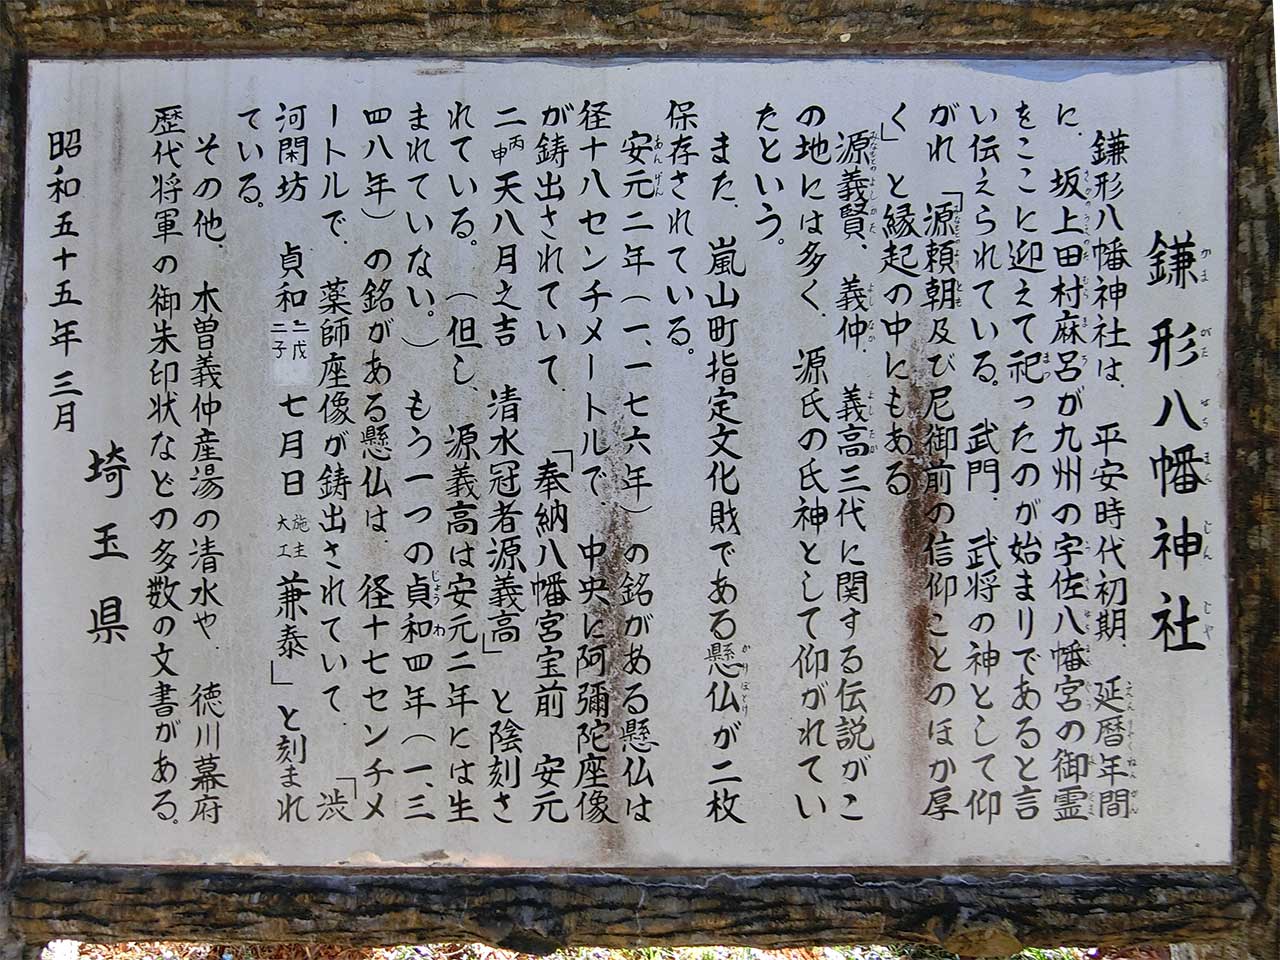 鎌形八幡神社
鎌形八幡神社は、平安時代初期、延暦年間
に、坂上田村麻呂が九州の宇佐八幡宮の御霊
をここに迎えて祀ったのが始まりであると言
い伝えられている。武門、武将の神として仰
がれ「源頼朝及び尼御前の信仰ことのほか厚
く」と縁起の中にもある
源義賢、義仲、義高三代に関する伝説がこ
の地には多く、源氏の氏神として仰がれてい
たという。
また、嵐山町指定文化財である懸仏が二枚
保存されている。
安元二年(一、一七六年)の銘がある懸仏は
径十八センチメートルで、中央に阿彌陀座像
が鋳出されていて、「奉納八幡宮宝前 安元
二丙申天八月之吉 清水冠者源義高」と陰刻さ
れている。(但し、源義高は安元二年には生
まれていない。)もう一つの貞和四年(一、三
四八年)の銘がある懸仏は、径十七センチメ
ートルで、薬師座像が鋳出されていて、「渋
河閑坊 貞和二二戊子 七月日 施主大工 兼泰」と刻まれ
ている。
その他、木曽義仲産湯の清水や、徳川幕府
歴代将軍の御朱印状などの多数の文書がある。
埼玉県
昭和五十五年三月